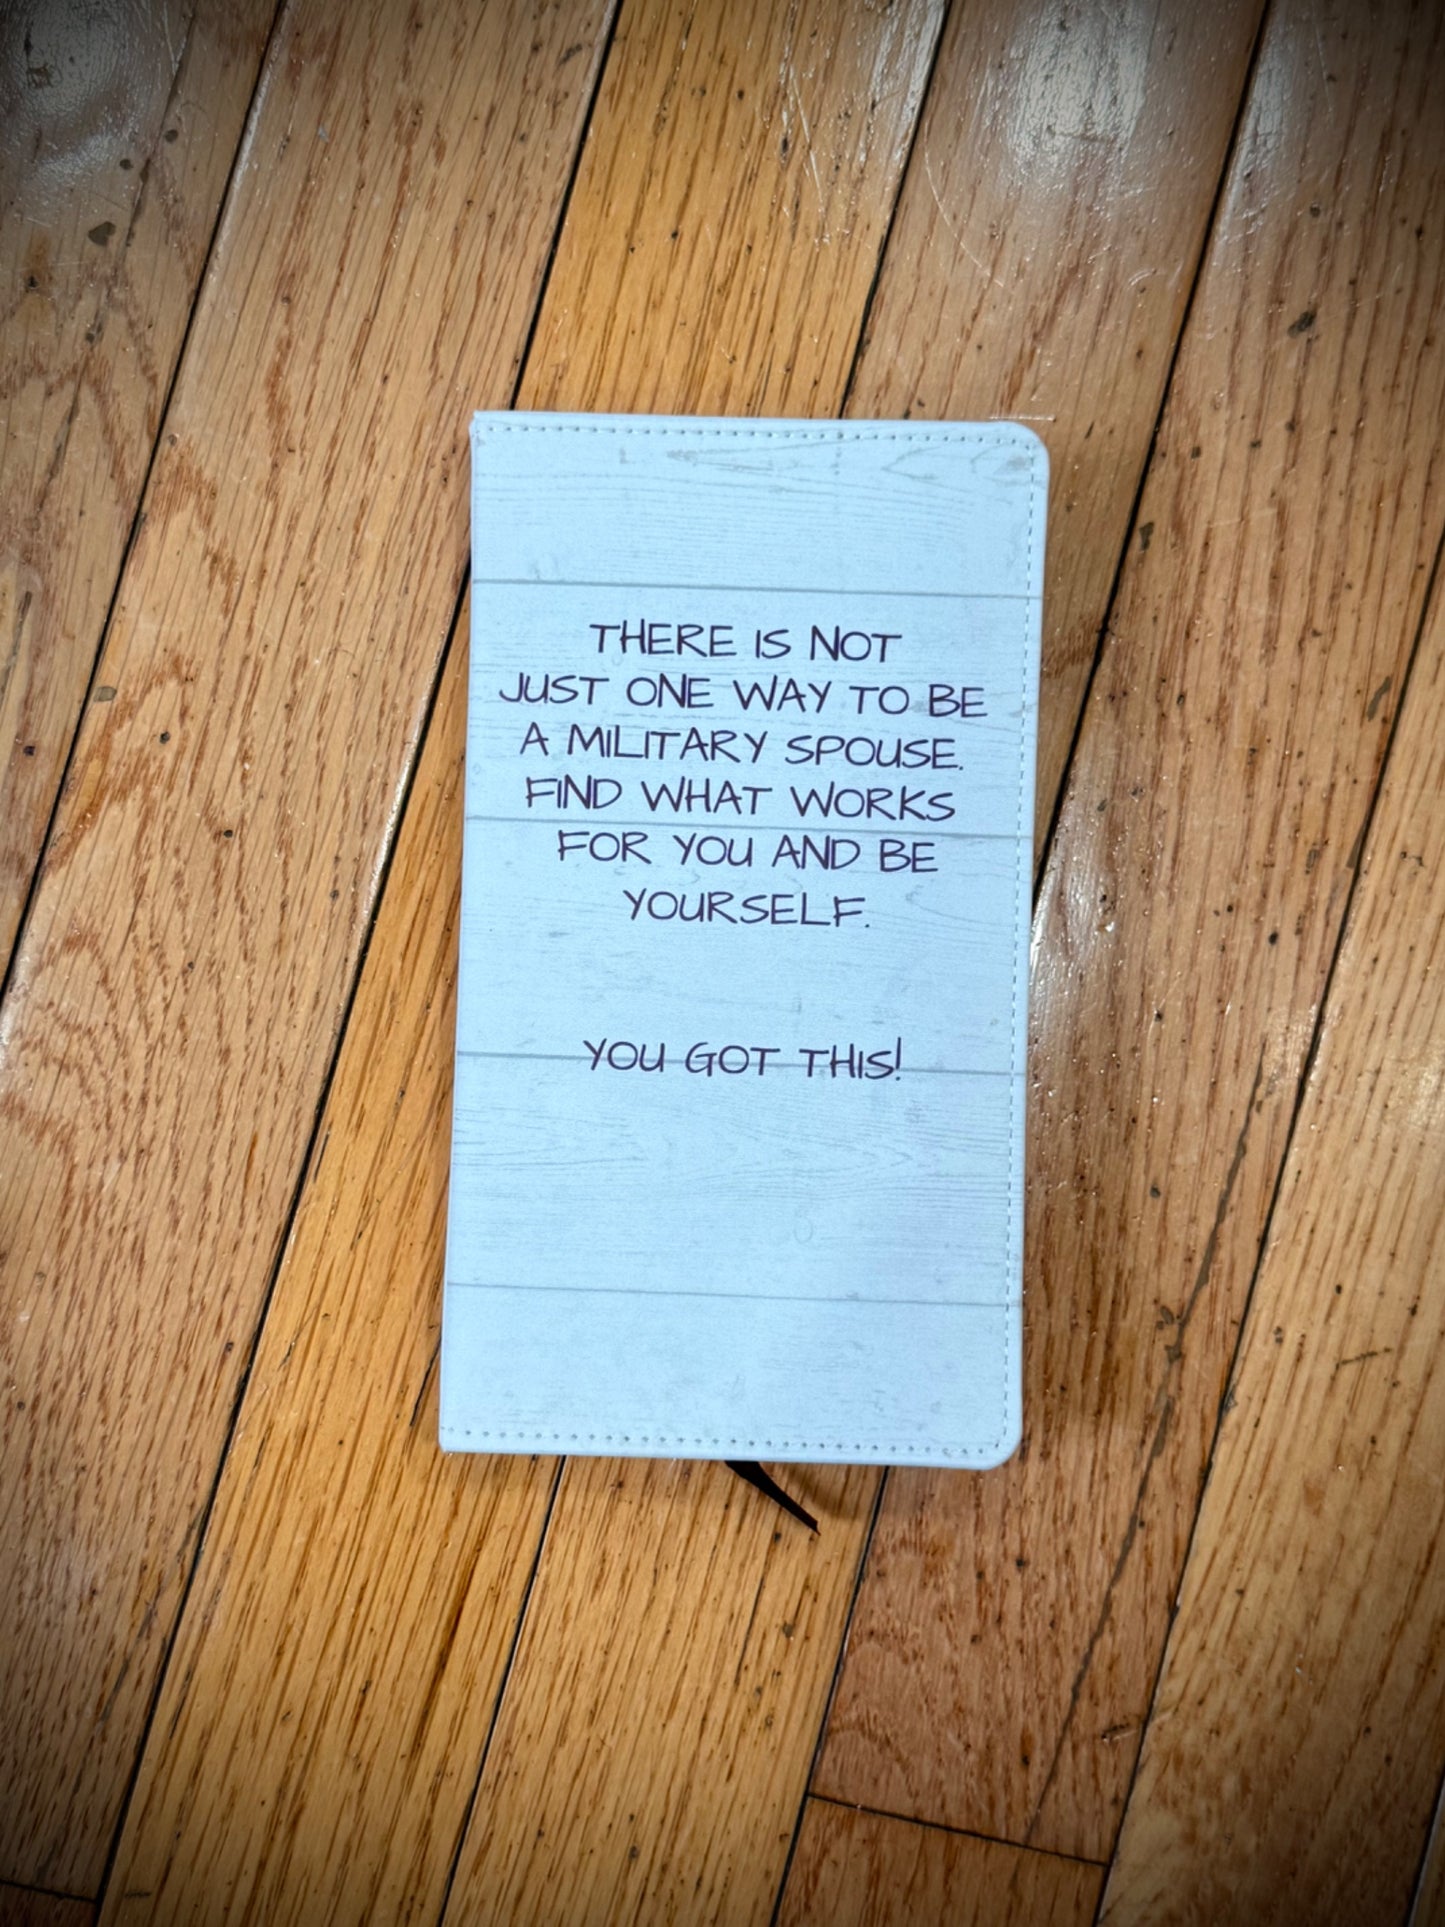 THERE IS NOT
JUST ONE WAY TO BE
A MILITARY SPOUSE.
FIND WHAT WORKS
FOR YOU AND BE
YOURSELF.
YOU GOT THIS!